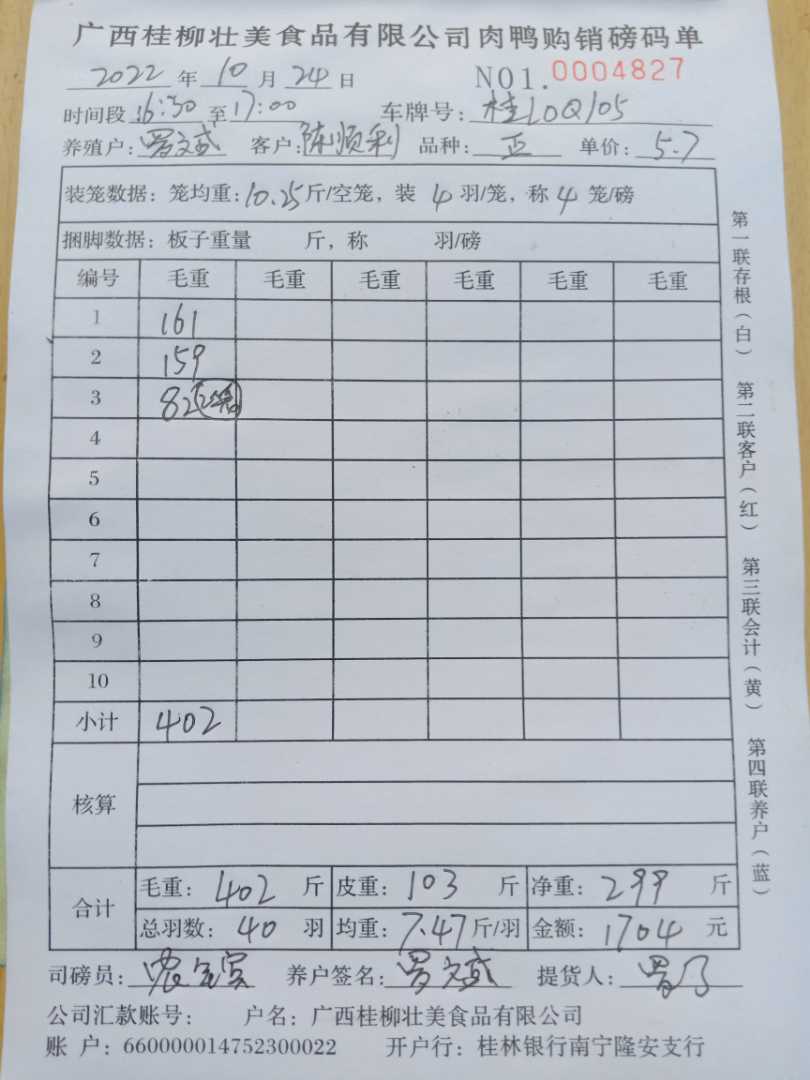 广西桂柳壮美食品有限公司肉鸭购销磅码单
2022年10月24日 NO1.0004827
时间段:16:30至17:00 车牌号:桂L0Q105
养殖户:罗文武 客户:陈顺利 品种:正 单价:5.7
装笼数据:笼均重:10.25斤/空笼,装4羽/笼,称4笼/磅
捆脚数据:板子重量 斤,称 羽/磅
编号 毛重 毛重 毛重 毛重 毛重 毛重
1 161
2 159
3 82 2笼
4
5
6
7
8
9
10
小计 402
核算
合计 毛重:402斤 皮重:103斤 净重:299斤
总羽数:40羽 均重:7.47斤/羽 金额:1704元
司磅员: 养户签名:罗文武 提货人:
公司汇款账号: 户名:广西桂柳壮美食品有限公司
账 户:660000014752300022 开户行:桂林银行南宁隆安支行
第一联存根(白) 第二联客户(红) 第三联会计(黄) 第四联养户(蓝)